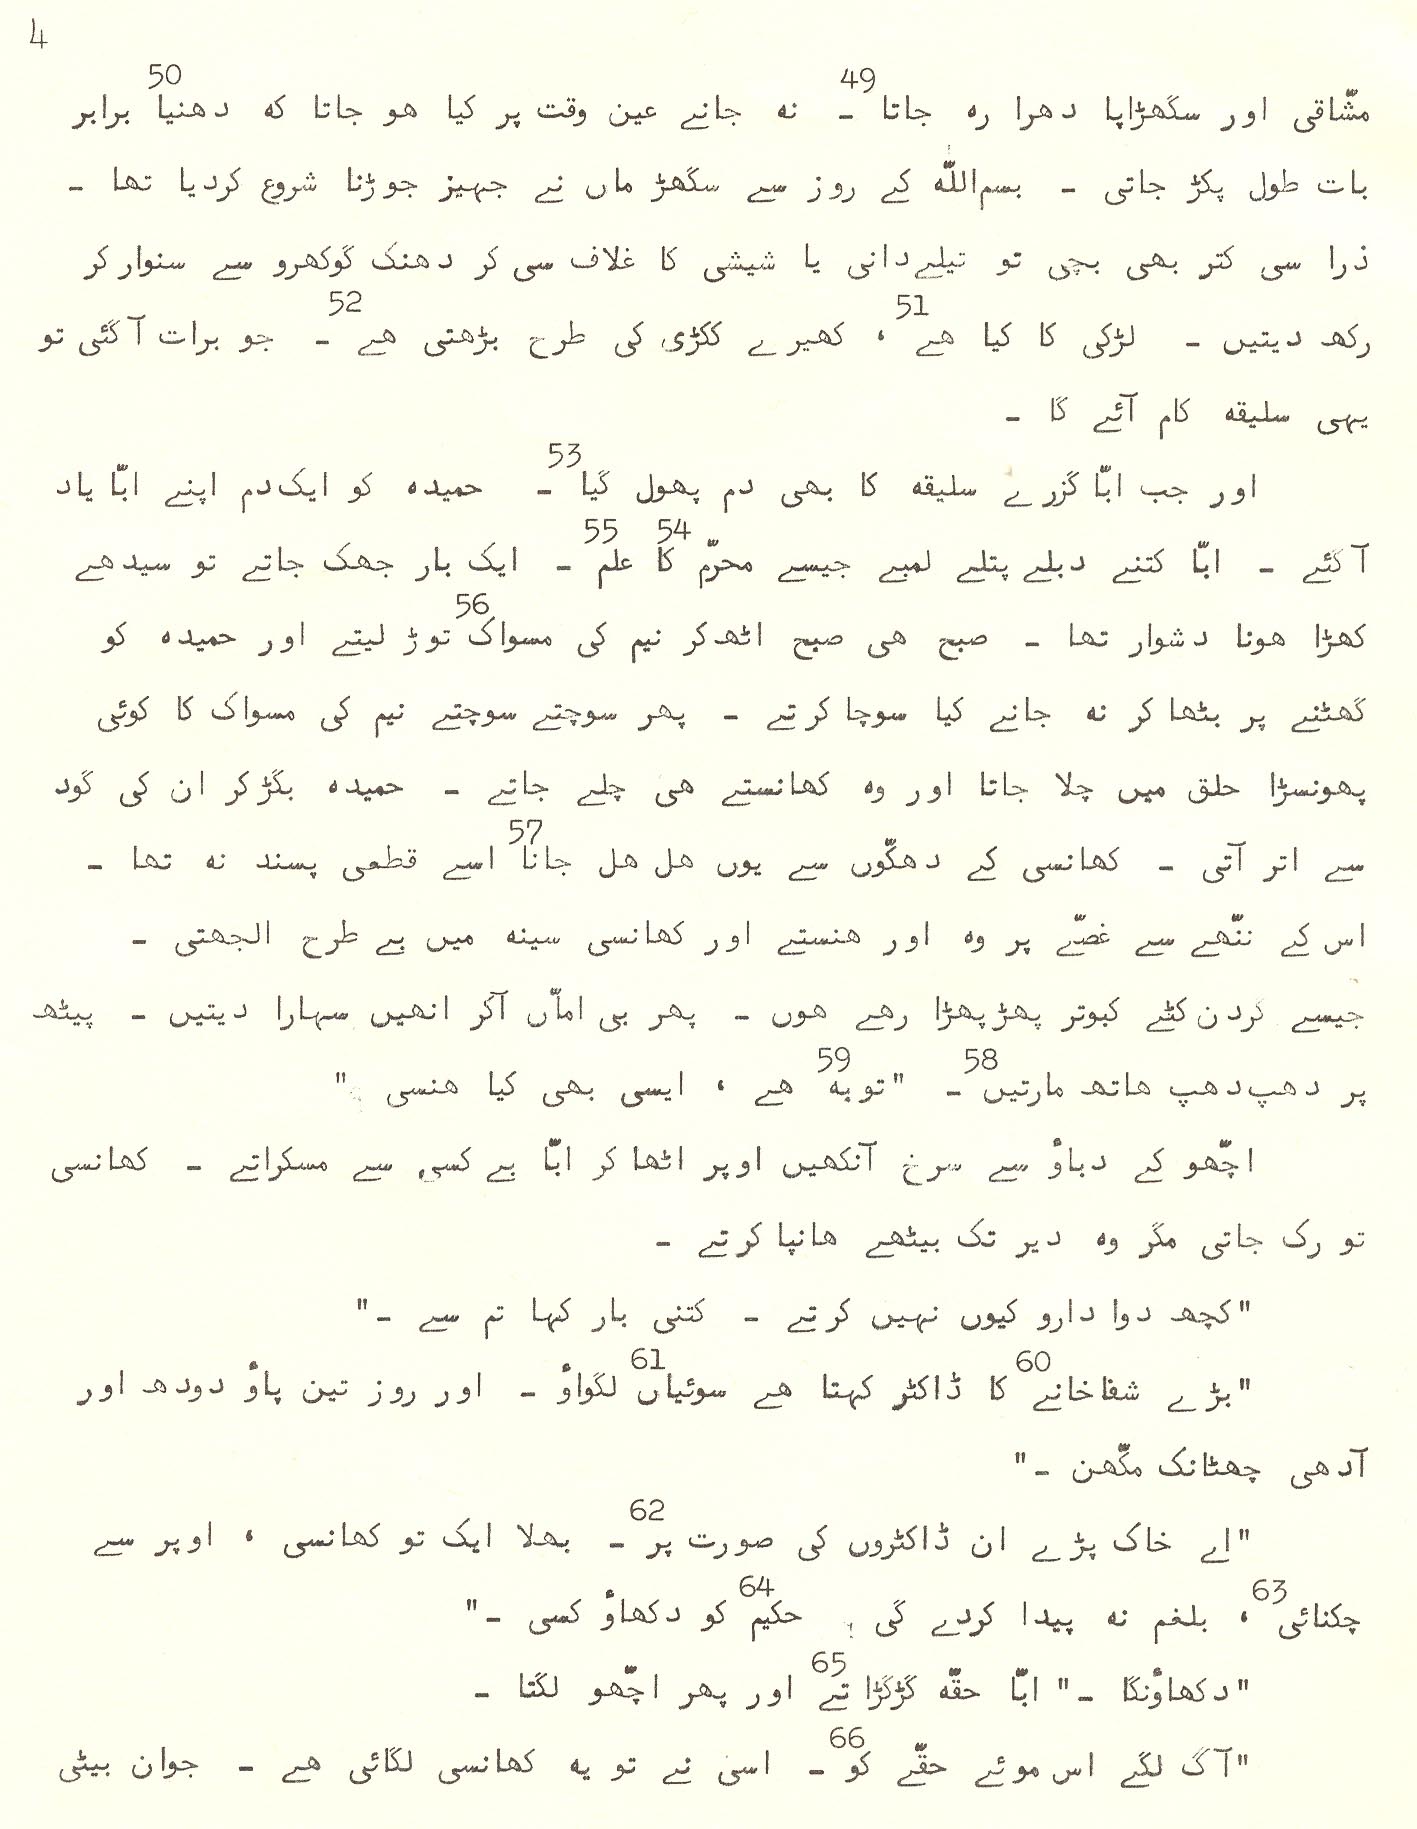 4
مشّاقی اور سگھڑاپا دھرا رہ جاتا49 ۔ نہ جانے عین وقت پر کیا ہو جاتا کہ دھنیا50 برابر
بات طول پکڑ جاتی ۔ بسم اللّٰہ کے روز سے سگھڑ ماں نے جہیز جوڑنا شروع کردیا تھا ۔
ذرا سی کتر بھی بچی تو تیلےدانی یا شیشی کا غلاف سی کر دھنک گوکھرو سے سنوار کر
رکھ دیتیں ۔ لڑکی کا کیا ہے51 ، کھیرے ککڑی کی طرح بڑھتی ہے52 ۔ جو برات آگئی تو
یہی سلیقہ کام آئے گا ۔
اور جب ابّا گزرے سلیقہ کا بھی دم پھول گیا53 ۔ حمیدہ کو ایک دم اپنے ابّا یاد
آگئے ۔ ابّا کتنے دبلے پتلے لمبے جیسے محرّم54 کا علم55 ۔ ایک بار جھک جاتے تو سیدھے
کھڑا ہونا دشوار تھا ۔ صبح ہی صبح اٹھ کر نیم کی مسواک56 توڑ لیتے اور حمیدہ کو
گھٹنے پر بٹھا کر نہ جانے کیا سوچا کرتے ۔ پھر سوچتے سوچتے نیم کی مسواک کا کوئی
پھونسڑا حلق میں چلا جاتا اور وہ کھانستے ہی چلے جاتے ۔ حمیدہ بگڑ کر ان کی گود
سے اتر آتی ۔ کھانسی کے دھکّوں سے یوں ہل ہل جانا57 اسے قطعی پسند نہ تھا ۔
اس کے ننّھے سے غصّے پر وہ اور ہنستے اور کھانسی سینہ میں بے طرح الجھتی ۔
جیسے گردن کٹے کبوتر پھڑپھڑا رہے ہوں ۔ پھر بی امّاں آکر انھیں سہارا دیتیں ۔ پیٹھ
پر دھپ دھپ ہاتھ مارتیں58 ۔ "توبہ59 ہے ، ایسی بھی کیا ہنسی "
اچّھو کے دباؤ سے سرخ آنکھیں اوپر اٹھا کر ابّا بے کسی سے مسکراتے ۔ کھانسی
تو رک جاتی مگر وہ دیر تک بیٹھے ہانپا کرتے ۔
"کچھ دوا دارو کیوں نہیں کرتے ۔ کتنی بار کہا تم سے ۔"
"بڑے شفاخانے60 کا ڈاکٹر کہتا ہے سوئیاں61 لگواؤ ۔ اور روز تین پاؤ دودھ اور
آدھی چھٹانک مکّھن ۔"
"اے خاک پڑے ان ڈاکٹروں کی صورت پر62 ۔ بھلا ایک تو کھانسی ، اوپر سے
چکنائی63 ، بلغم نہ پیدا کردے گی ؟ حکیم64 کو دکھاؤ کسی ۔"
"دکھاؤنگا ۔" ابّا حقّہ گڑگڑاتے65 اور پھر اچّھو لگتا ۔
"آگ لگے اس موئے حقّے کو66 ۔ اسی نے تو یہ کھانسی لگائی ہے ۔ جوان بیٹی